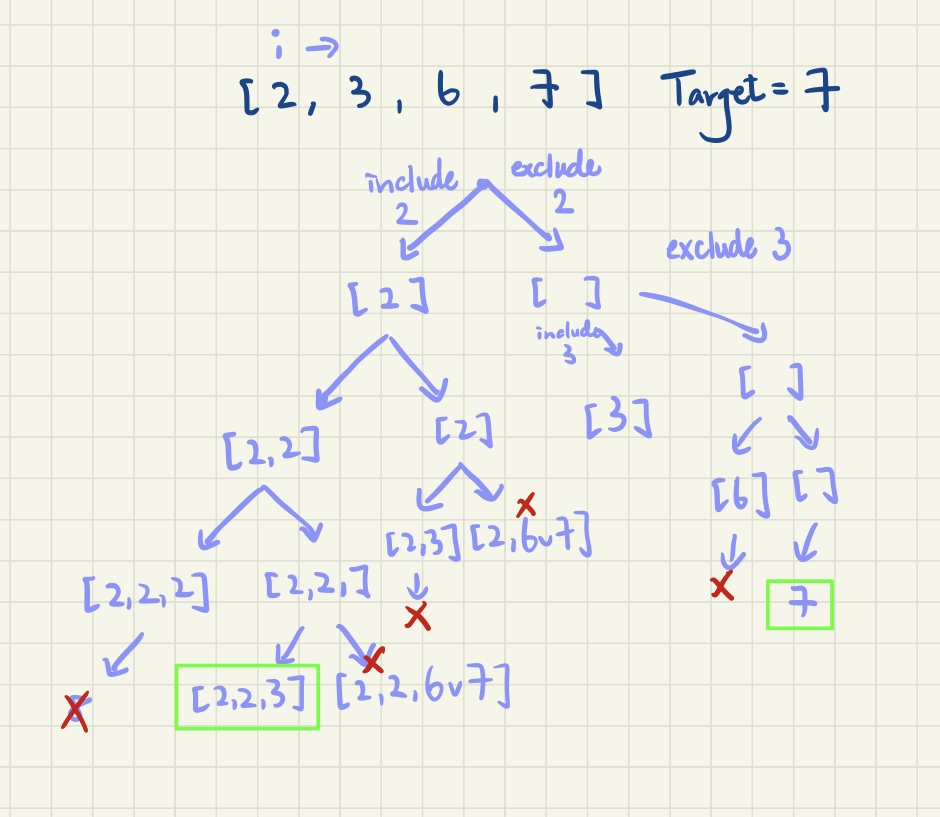 i →
[ 2 , 3 , 6 , 7 ] Target = 7
include 2
exclude 2
exclude 3
[ 2 ]
[ ]
include 3
[ ]
[2,2]
[2]
[3]
[6]
[ ]
[2,3]
[2,6v7]
[2,2,2]
[2,2,]
7
[2,2,3]
[2,2,6v7]